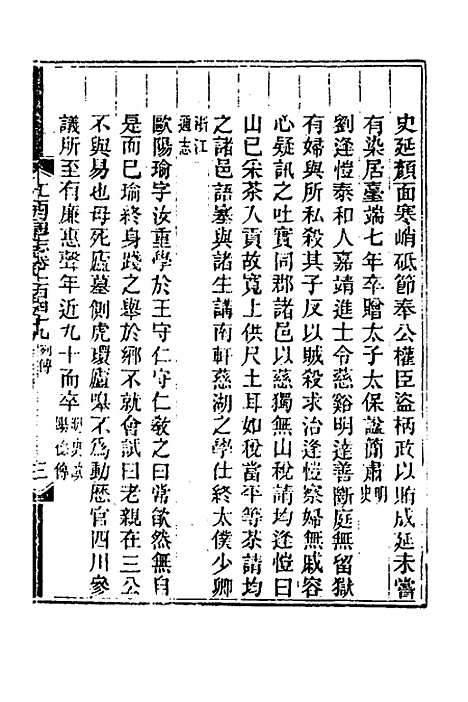 史延顏面寒峭砥節奉公權臣盜柄政以賄成延未嘗
有染居臺端七年卒贈太子太保諡簡肅明史
劉逢愷泰和人嘉靖進士令慈谿明達善斷庭無留獄
有婦與所私殺其子反以賊殺求治逢愷察婦無戚容
心疑訊之吐實同郡諸邑以慈獨無山稅請均逢愷曰
山已宋茶入貢故寬上供尺土耳如稅當平等茶請均
之諸邑語塞與諸生講南軒慈湖之學仕終太僕少卿
浙江通志
歐陽瑜字汝重學於王守仁守仁敎之曰常欿然無自
是而已瑜終身踐之舉於鄉不就會試曰老親在三公
不與易也母死廬墓側虎環廬嘷不爲動歷官四川參
議所至有廉惠聲年近九十而卒明史歐陽德傳
江西通志卷一百四十九 列傳 三